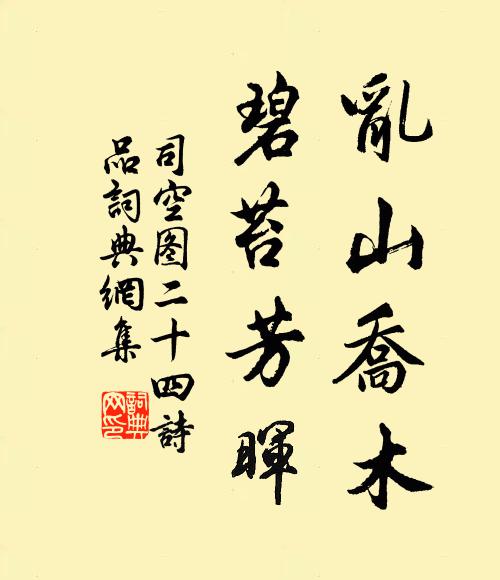 亂山喬木
碧苔芳暉
司空图二十四詩
品詞典網集
詞典
网印